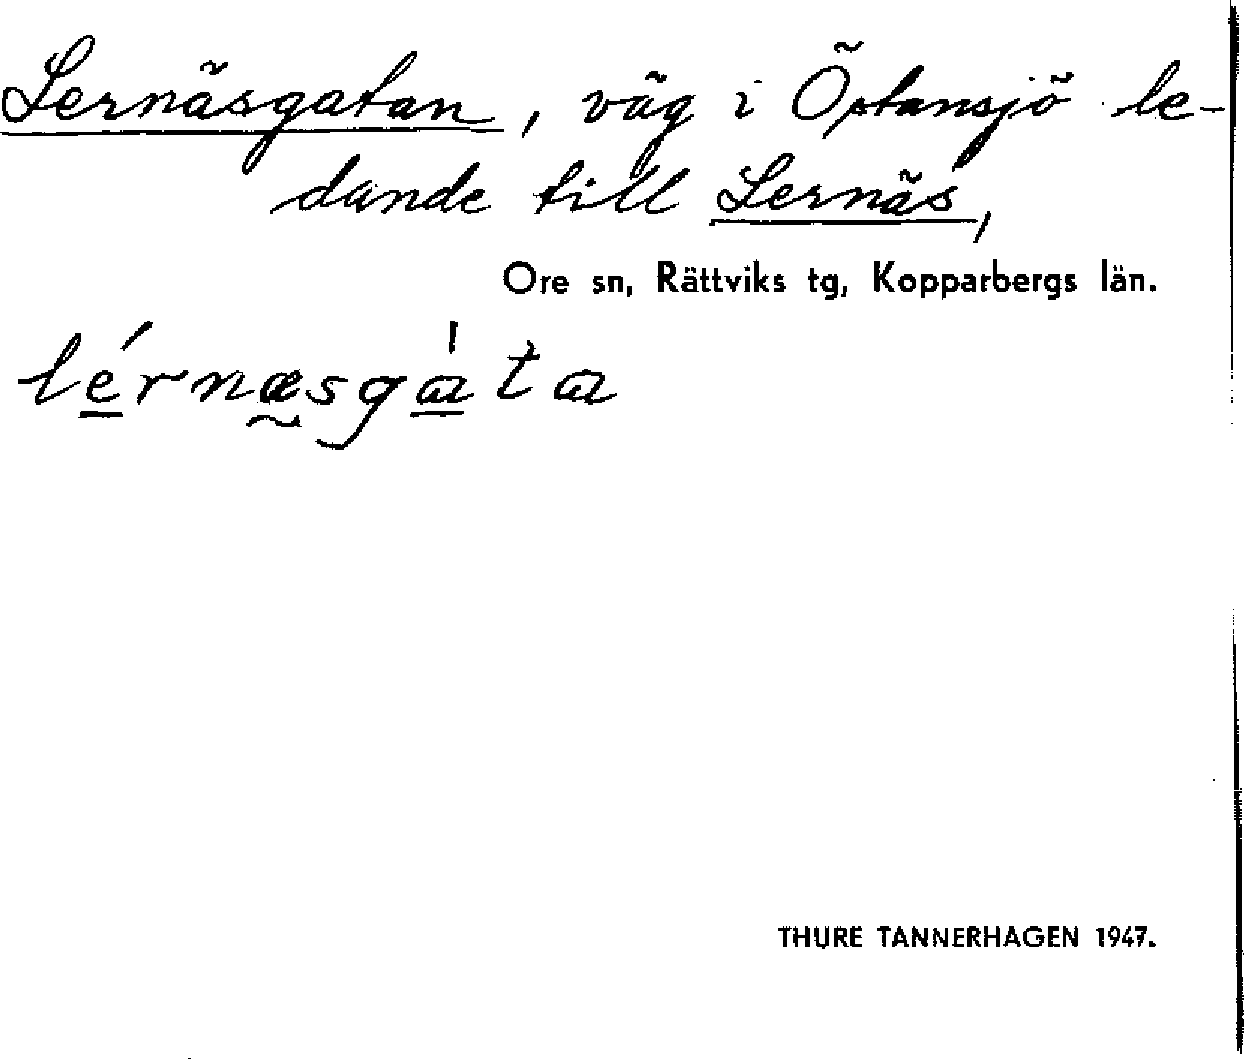 Lernäsgatan, väg i Östansjö le-
dande till Lernäs,
Ore sn, Rättviks tg, Kopparbergs län.
lé̲rnæ̰sgà̲ta
THURE TANNERHAGEN 1947.